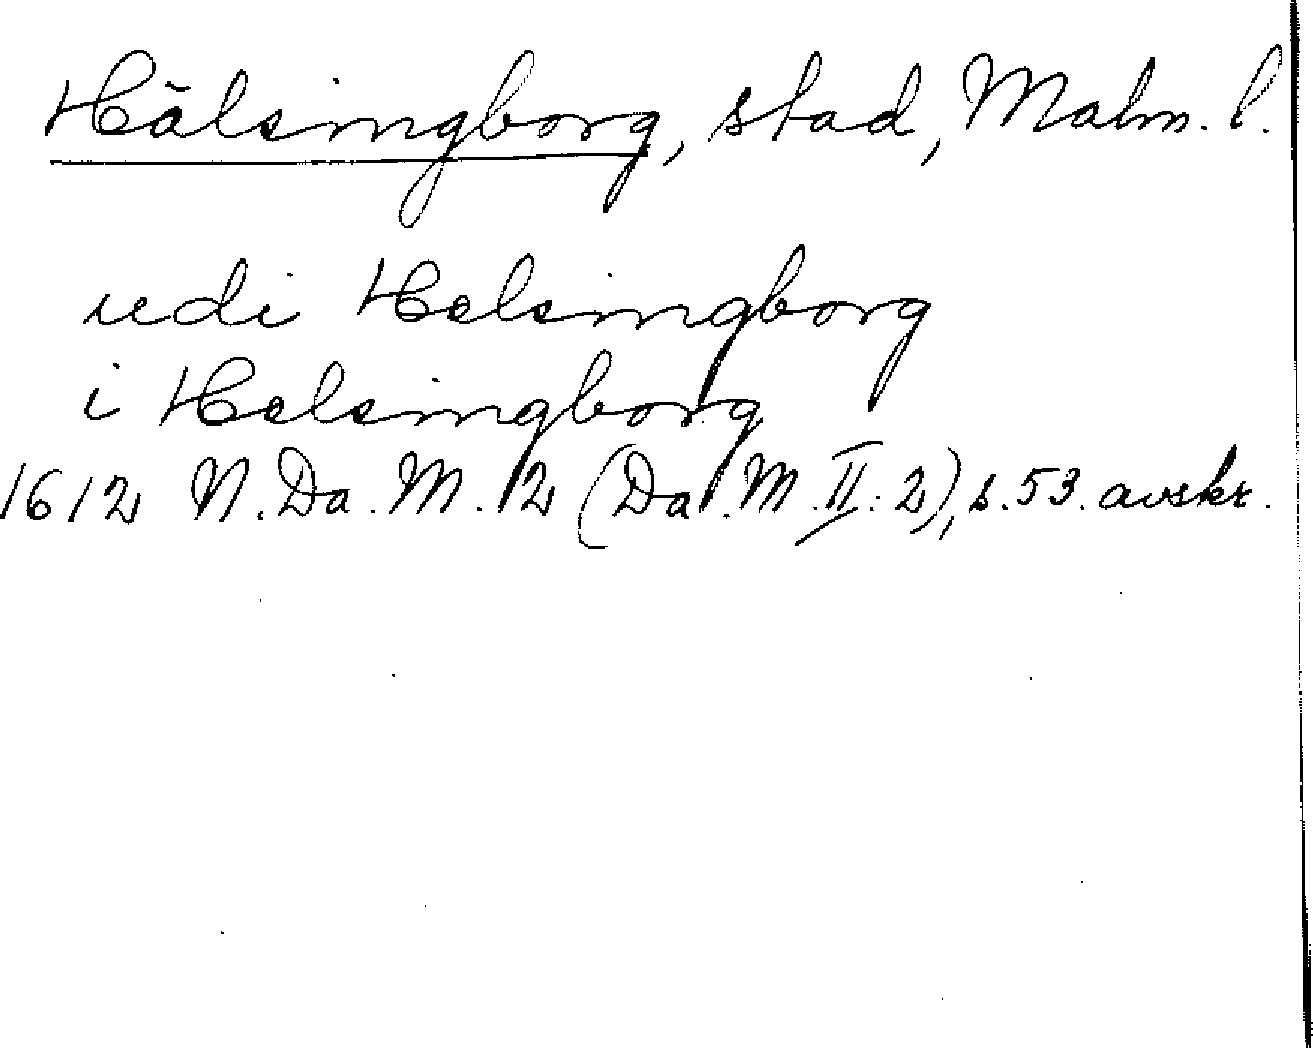 Hälsingborg, stad, Malm. l.
udi Helsingborg
i Helsingborg
1612 N. Da. M. 2 (Da. M. II: 2), s. 53. avskr.